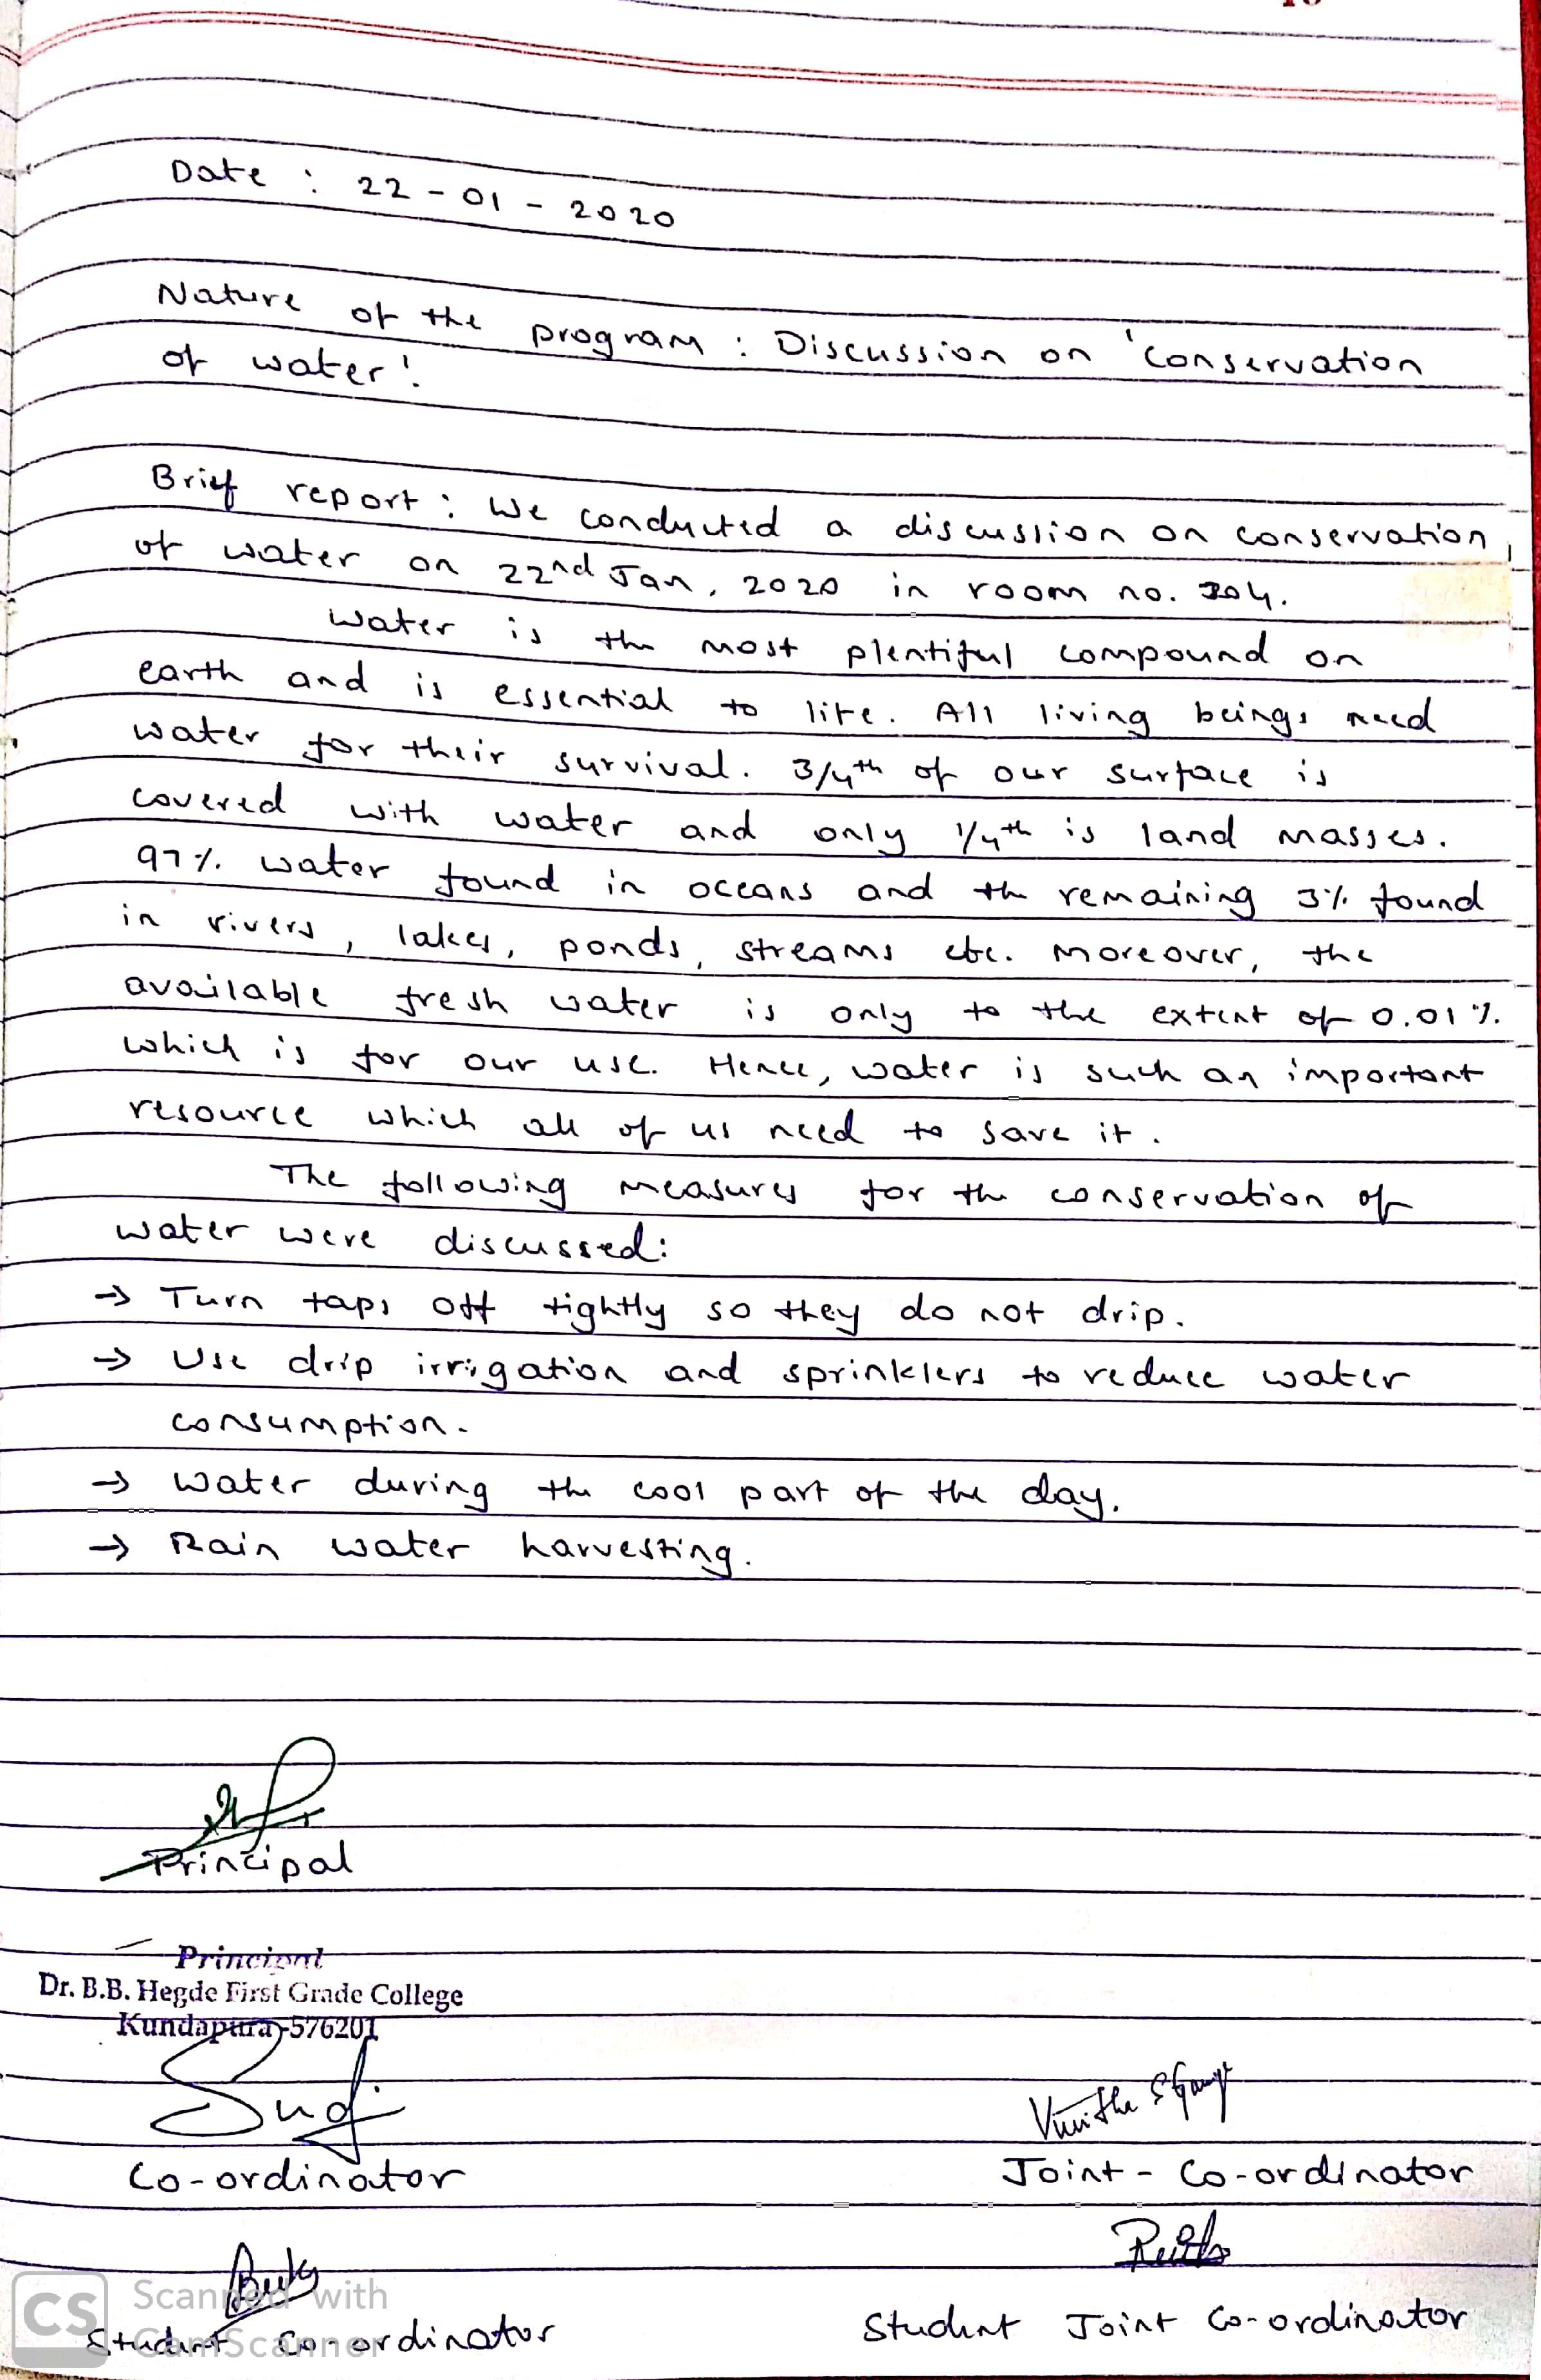 Date : 22 - 01 - 2020
Nature of the program : Discussion on 'conservation
of water'.
Brief report : We conducted a discussion on conservation
of water on 22nd Jan, 2020 in room no. 304.
Water is the most plentiful compound on
earth and is essential to life. All living beings need
water for their survival. 3/4th of our surface is
covered with water and only 1/4th is land masses.
97% water found in oceans and the remaining 3% found
in rivers, lakes, ponds, streams etc. Moreover, the
available fresh water is only to the extent of 0.01%
which is for our use. Hence, water is such an important
resource which all of us need to save it.
The following measures for the conservation of
water were discussed:
→ Turn taps off tightly so they do not drip.
→ Use drip irrigation and sprinklers to reduce water
consumption.
→ Water during the cool part of the day.
→ Rain water harvesting.
Principal
Principal
Dr. B.B. Hegde First Grade College
Kundapura-576201
Co-ordinator
Joint - Co-ordinator
CS Scanned with
CamScanner
Student Co-ordinator
Student Joint Co-ordinator